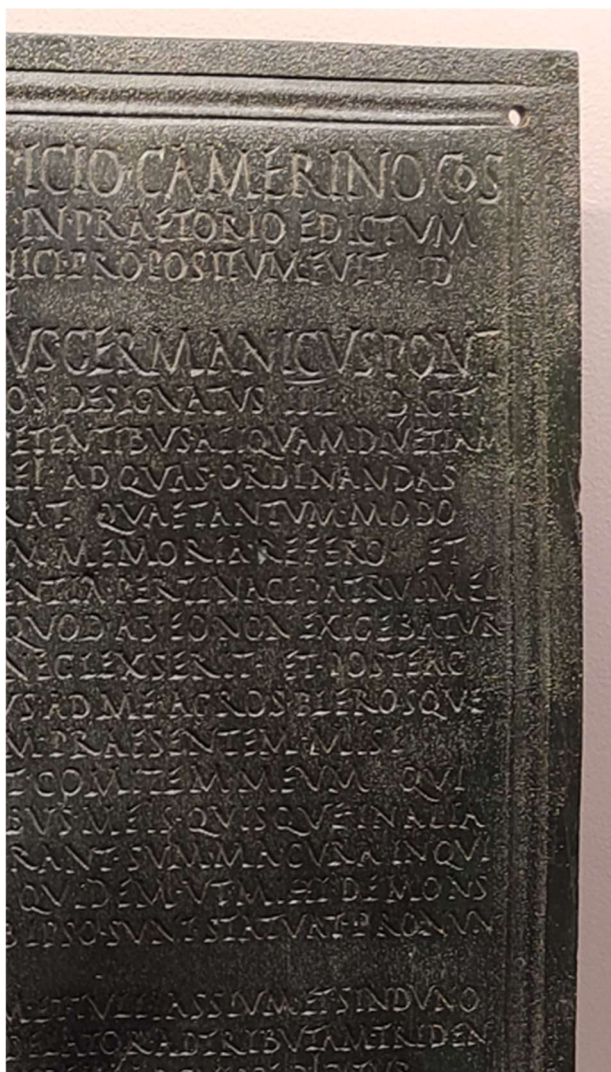 ICIO·CAMERINO COS
IN PRAETORIO EDICTVM
NICI·PROPOSITVM·FVIT·ID
VS GERMANICVS PONT
OS DESIGNATVS IIII DICIT
PETENTIBVS ALIQVAMDIV ETIAM
EI·AD QVAS·ORDINANDAS
RAT·QVAE TANTVM·MODO
M·MEMORIA·REFERO·ET
ENTIA·PERTINACI·PATRVI·MEI
QVOD·AB·EO NON EXIGEBATVR
NEGLEXSERIT·ET·POSTEAC
VS AD ME AGROS PLEROSQVE
M·PRAESENTEM·MISI
T·COMITEM·MEVM QVI
BVS·MEIS·QVISQVE IN ALIA
RANT·SVMMA CVRA INQVI
QVIDEM·VT·MIHI DEMONS
B IPSO·SVNT STATVAT·PRONVN
M·ET·TVLLIASSIVM·ET SINDVNO
DELATOR ADTRIBVTAM·TRIDEN